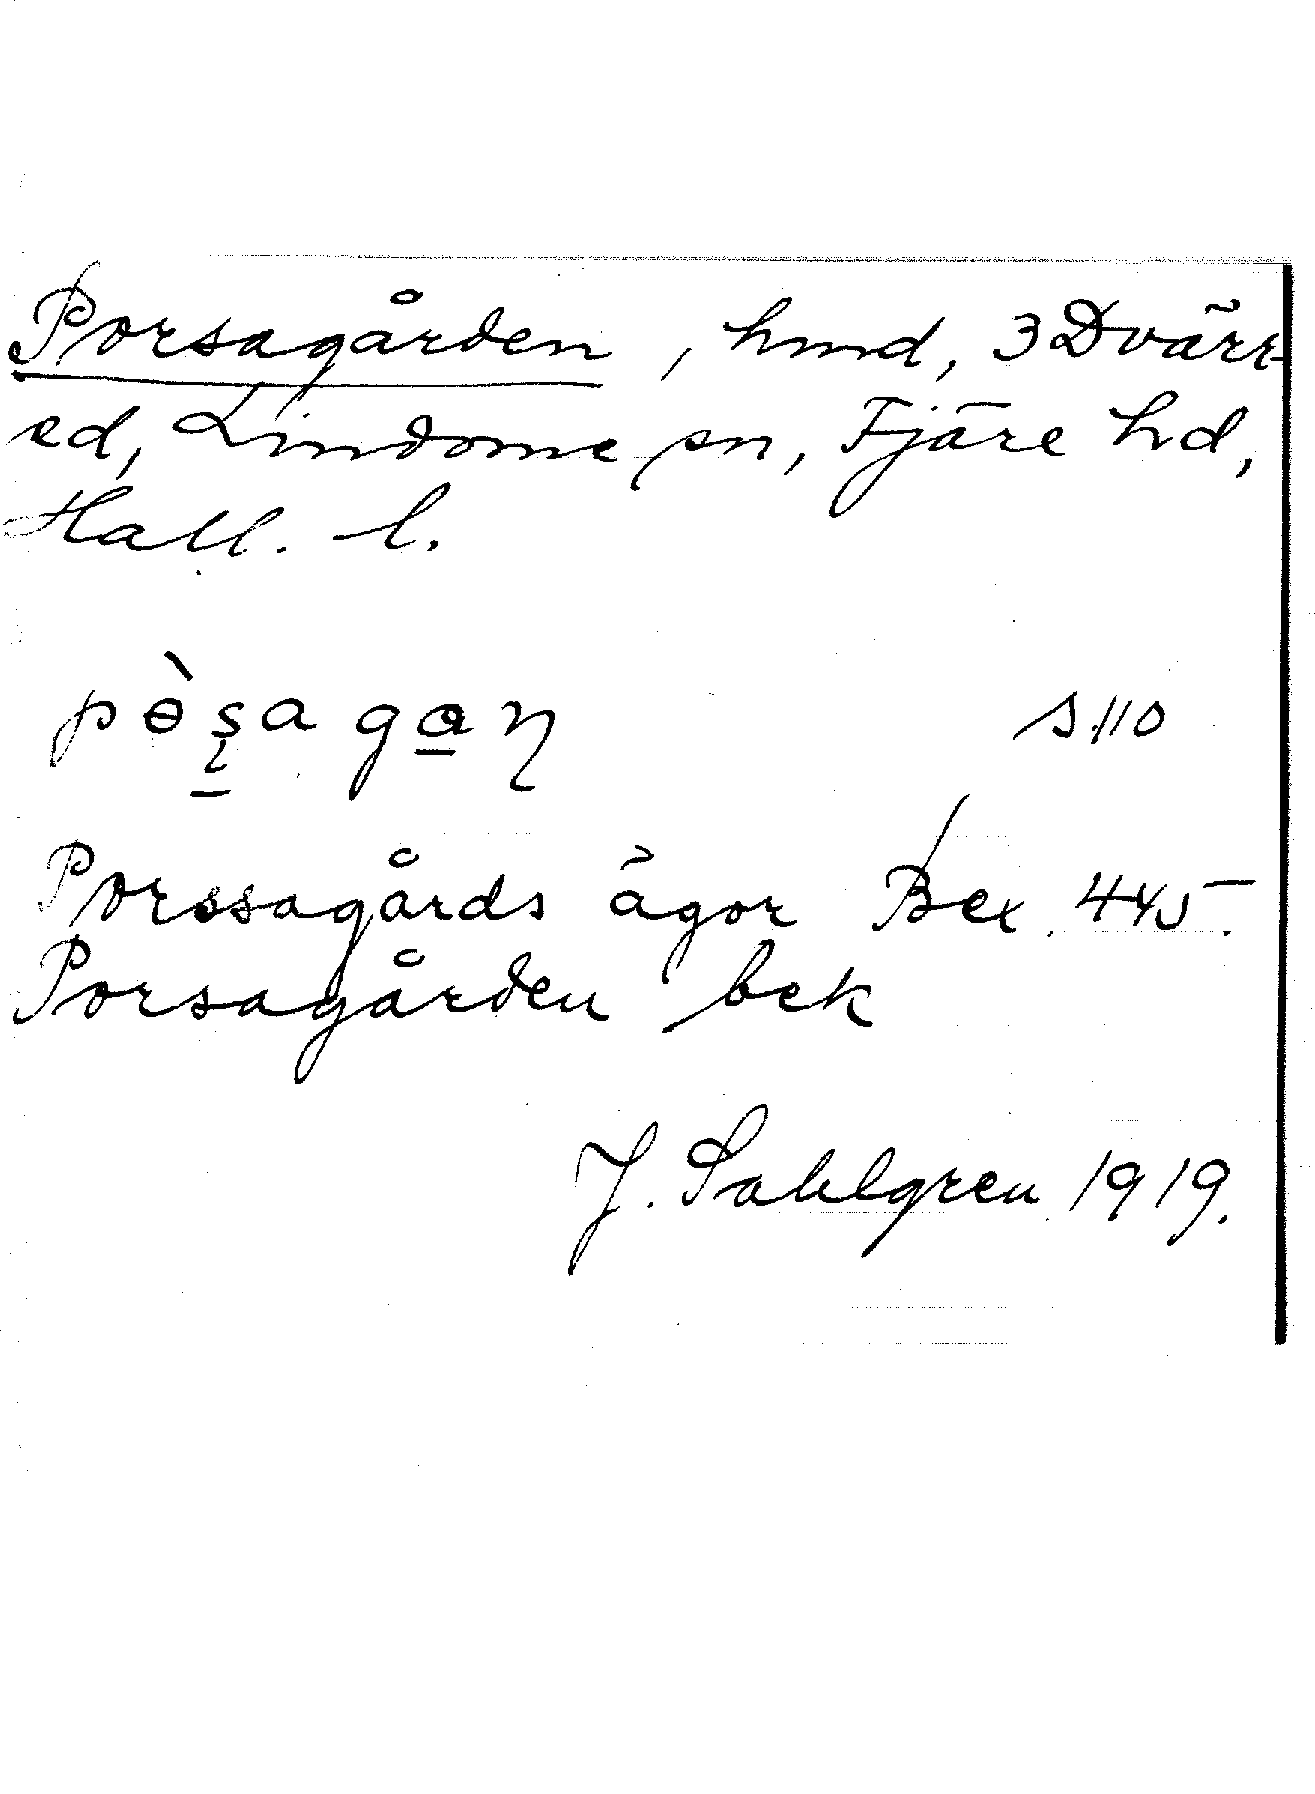 Porsagården, hmd, 3 Dvärr-
ed, Lindome sn, Fjäre hd,
Hall. l.
pɵ̀ʂagan̠ s. 110
Porssagårds ägor Bex. 445.
Porsagården bek
J. Sahlgren 1919.